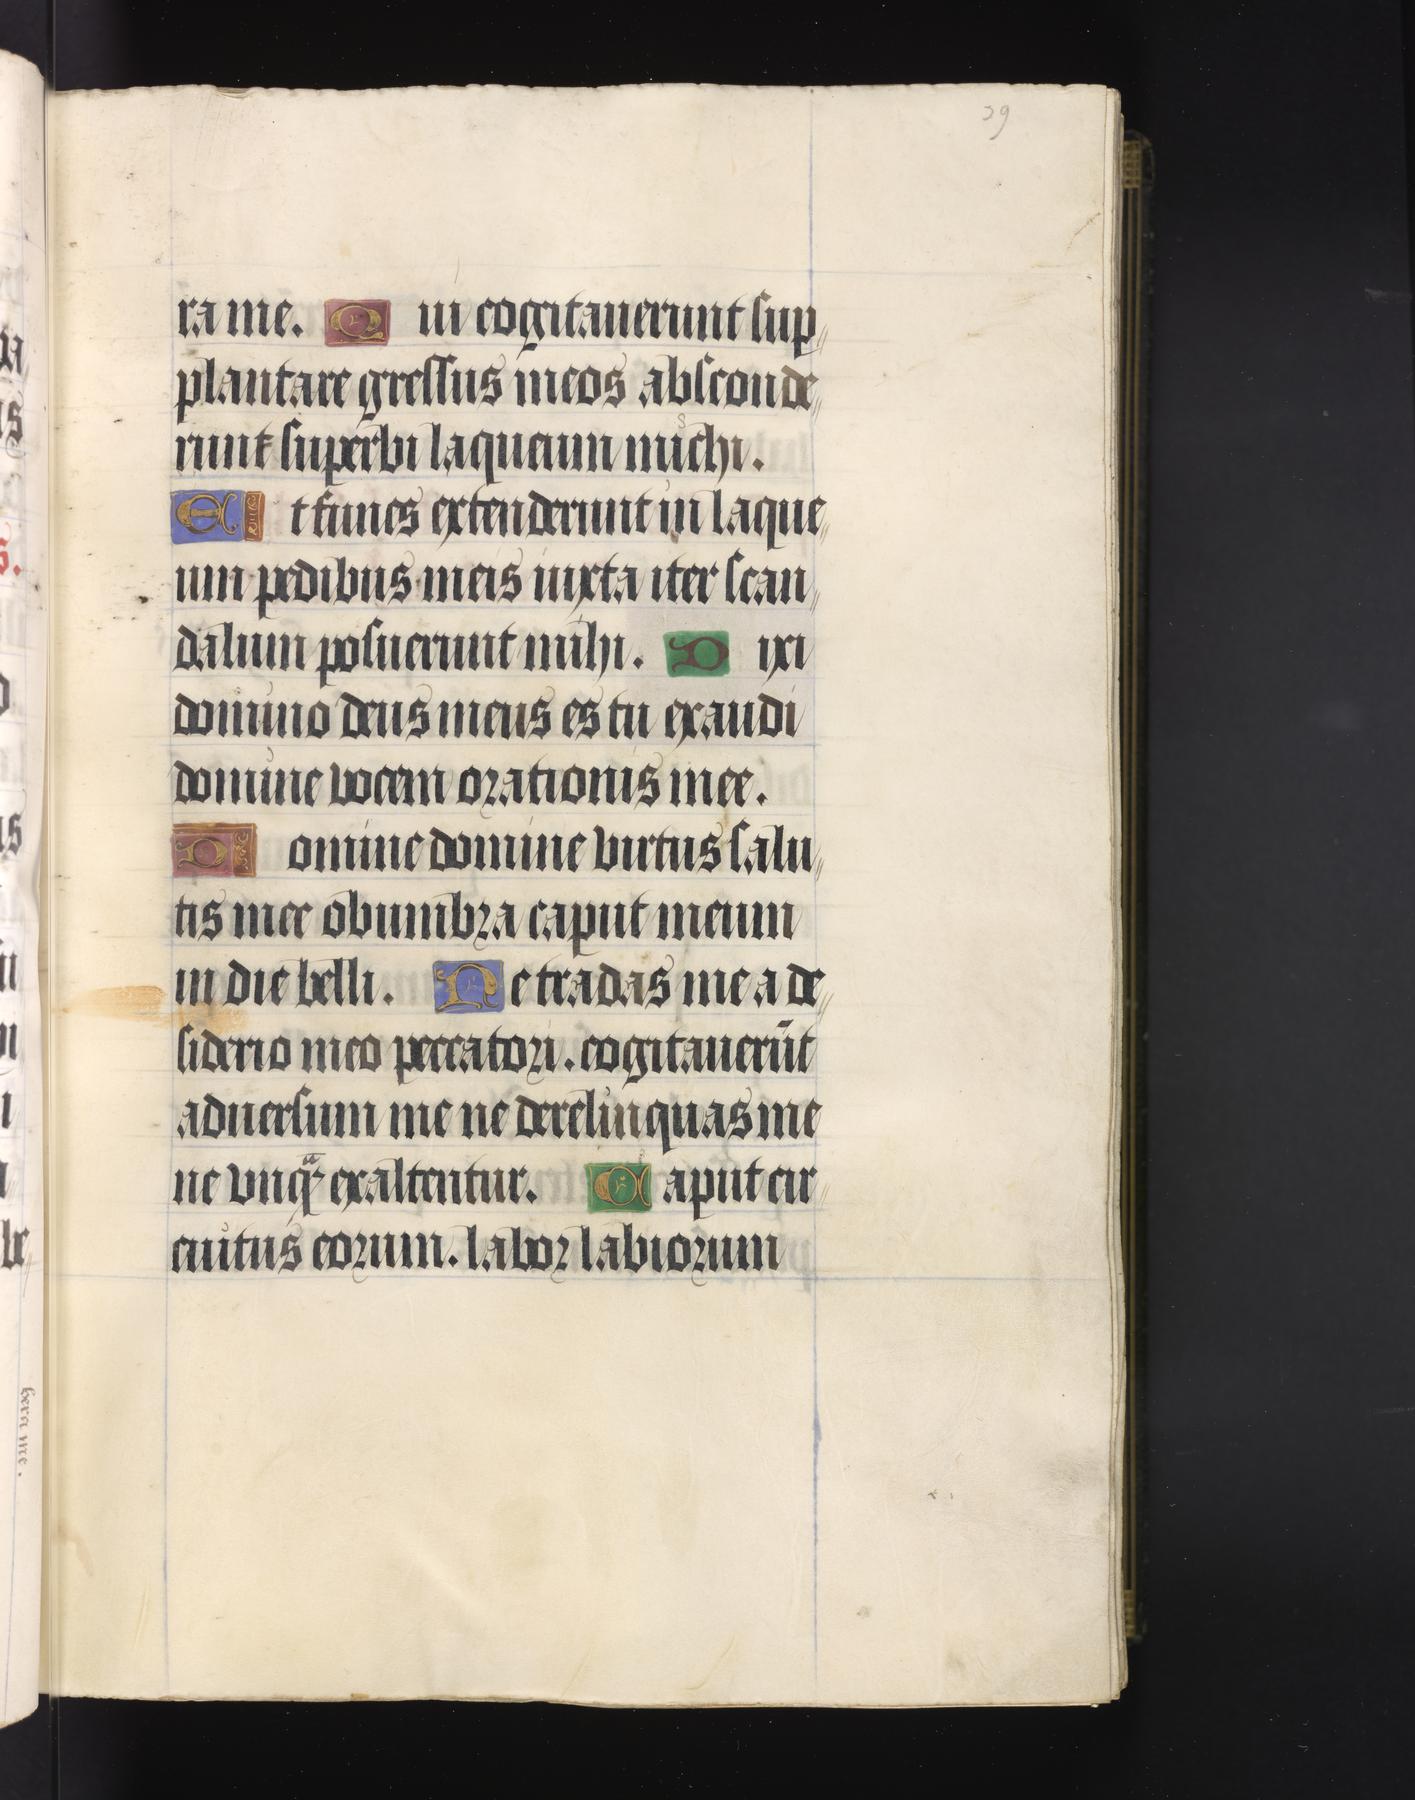 29
ra me. Qui cogitauerunt sup
plantare gressus meos absconde
runt superbi laqueum michi.
Et funes extenderunt in laque
um pedibus meis iuxta iter scan
dalum posuerunt mihi. Dixi
domino deus meus es tu exaudi
domine vocem orationis mee.
Domine domine virtus salu
tis mee obumbra caput meum
in die belli. Ne tradas me a de
siderio meo peccatori. cogitauerūt
aduersum me ne derelinquas me
ne vnqᷓ exaltentur. Caput cir
cuitus eorum. labor labiorum
bera me.